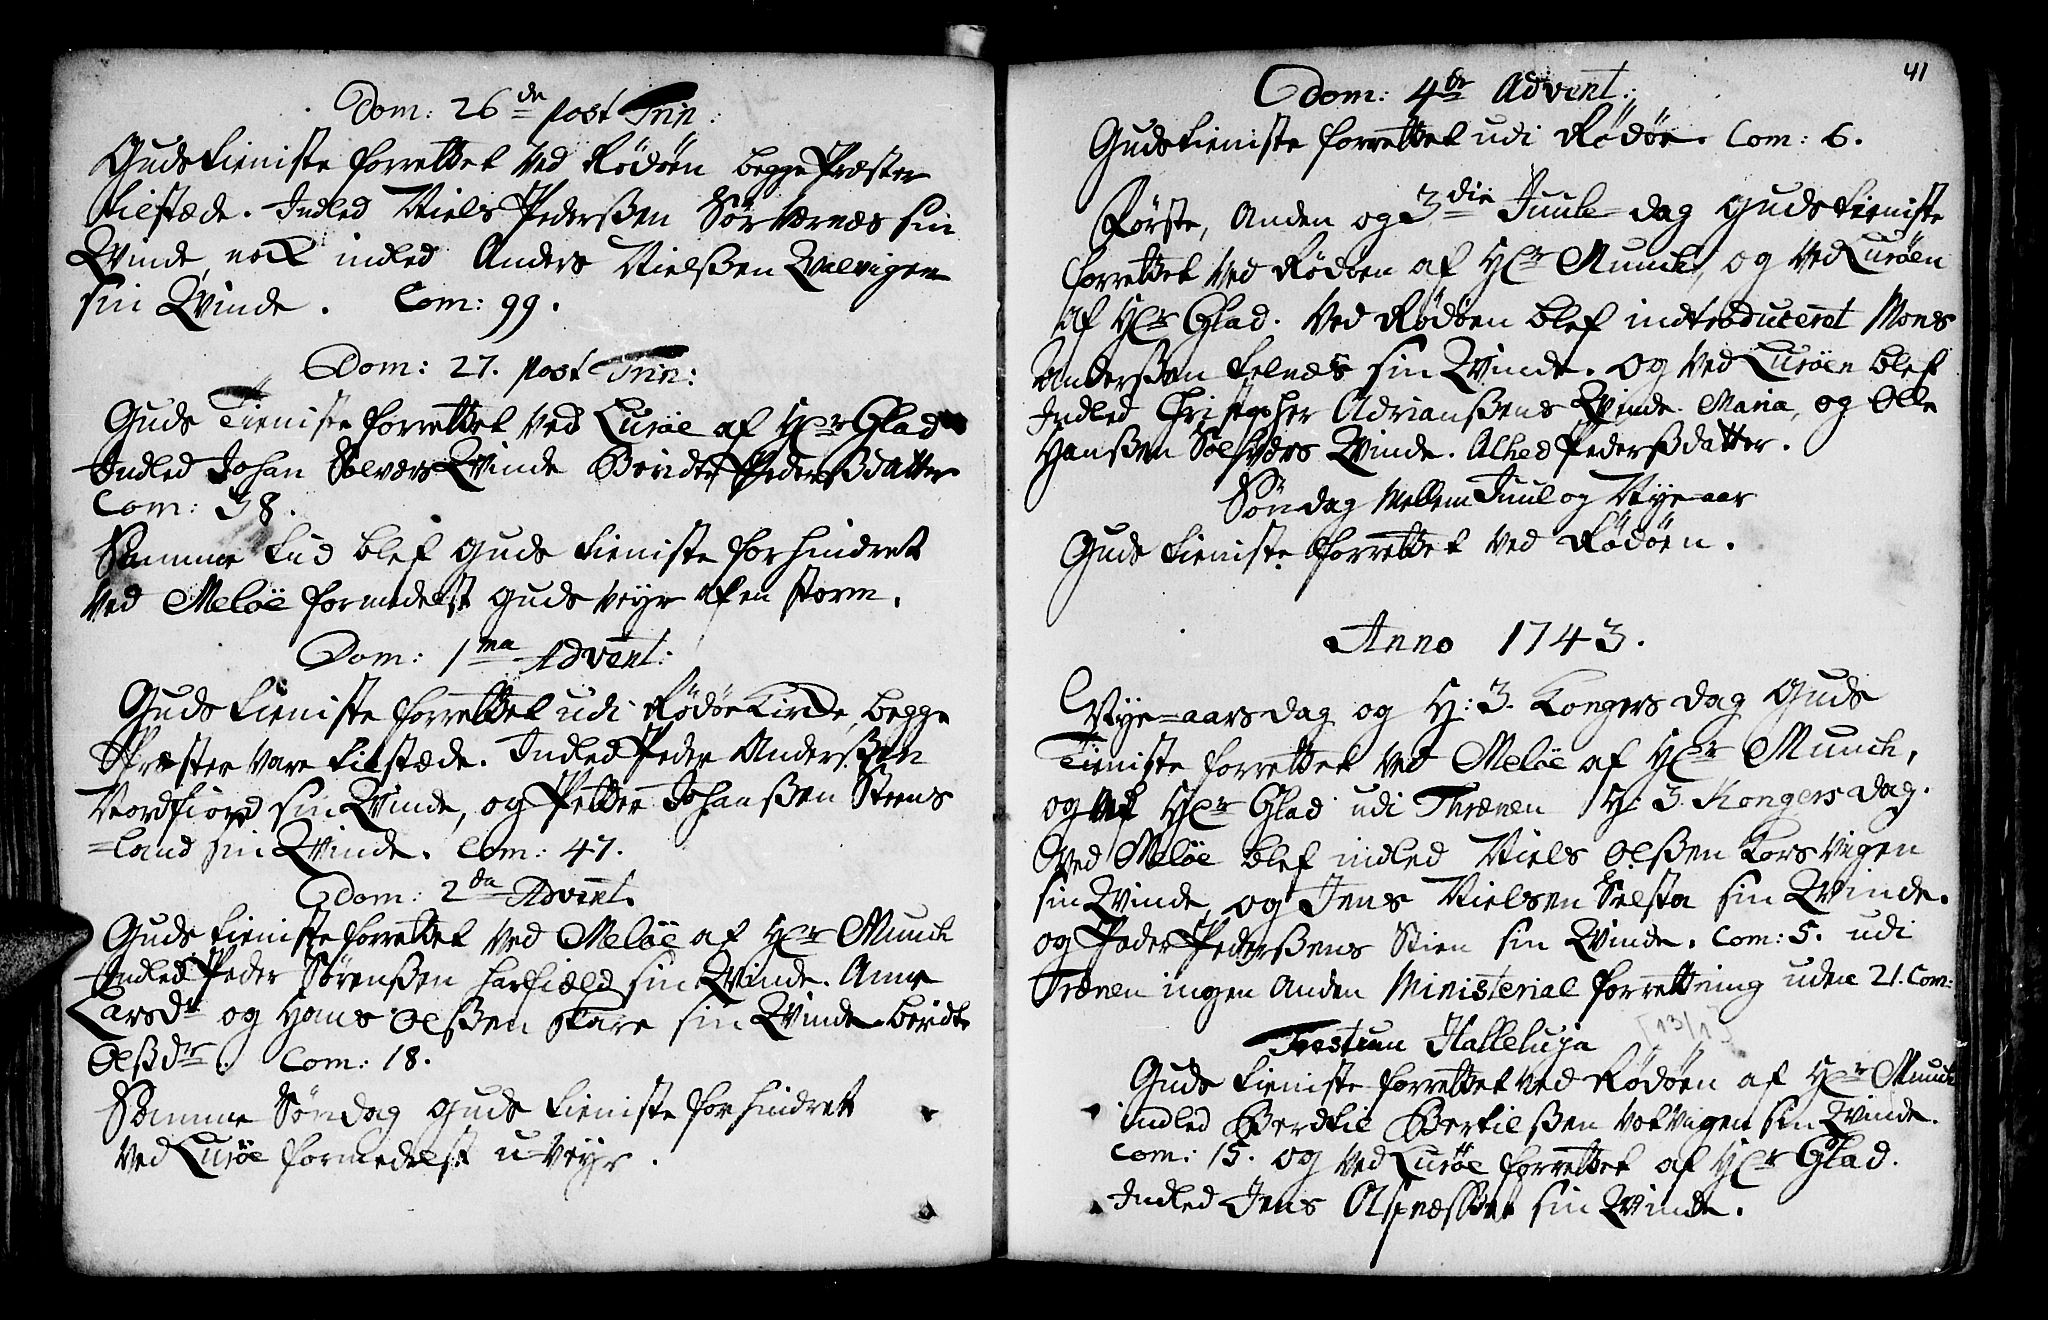 Dom: 26de post Trin:
Guds tieniste forrettet ved Rödöen begge Præster
tilstæde. Indled Niels Pederßen Sør værnæs sin
Qvinde, nock indled Anders Nielßen Qvalvigen
sin Qvinde. Com: 99.
Dom: 27. post Trin:
Guds Tieniste forrettet ved Luröe af Hr Glad
Indled Johan Solværs Qvinde Beridte Pederßdatter
Com: 38.
Samme tid blef Guds tieniste forhindret
ved Melöe formedelst Guds veyr af en storm.
Dom: 1ma Advent:
Guds tieniste forrettet udi Rödöe Kircke, begge
Præster vare tilstæde. Indled Peder Anderßen
Nordfiord sin Qvinde, og Petter Johanßen Strens
=land sin Qvinde. Com: 47.
Dom: 2da Advent.
Guds tieniste forrettet ved Melöe af Hr Munch
Indled Peder Sörenßen Harfield sin Qvinde. Anne
Larsdr og Hans Olßen Skare sin Qvinde Beridte
Olßdr. Com: 18.
Samme Söndag Guds tieniste forhindret
ved Luröe formedelst u-veyr.
41
Dom: 4de Advent:
Guds tieniste forrettet udi Rödöe. Com: 6.
Förste, Anden og 3die Juule-dag Guds tieniste
forrettet ved Rödöen af Hr Munch, og ved Luröen
af Hr Glad. Ved Rödöen blef indtroduceret Mons
Anderßen Telnæs sin Qvinde. og ved Luröen blef
Indled Christopher Adrianßens Qvinde Maria, og Olle
Hanßen Solfværs Qvinde. Alhed Pederßdatter.
Söndag Mellem Juul og Nye-aar
Guds tieniste forrettet ved Rödöen.
Anno 1743.
Nye-aarsdag og H: 3. Kongers dag Guds
Tieniste forrettet ved Melöe af Hr Munch,
og af Hr Glad udi Thrænen H: 3. Kongers dag.
Ved Melöe blef indled Niels Olßen Korsvigen
sin Qvinde, og Jens Nielsen Selsta sin Qvinde.
og Peder Pederßens Stien sin Qvinde. Com: 5. udi
Trænen ingen Anden Ministerial forretning uden 21. Com:
Festum Halleluja [13/1]
Guds tieniste forrettet ved Rödöen af Hr Munch
indled Berdtil Bertilßen Votvigen sin Qvinde.
Com: 15. og ved Luröe forrettet af Hr Glad.
Indled Jens sin Qvinde.